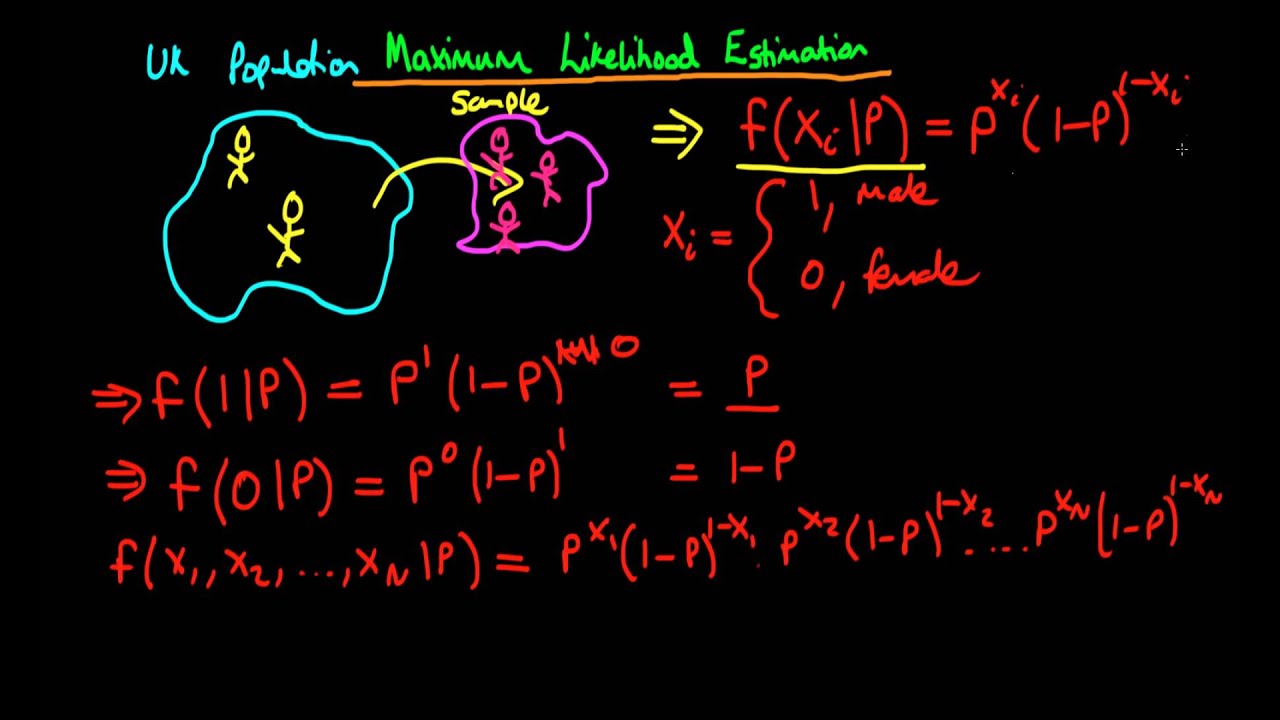 UK Population Maximum Likelihood Estimation
Sample
⇒ f(Xᵢ|P) = P^Xᵢ (1-P)^1-Xᵢ
Xᵢ = { 1, male
0, female
⇒ f(1|P) = P^1 (1-P)^0 = P
⇒ f(0|P) = P^0 (1-P)^1 = 1-P
f(X₁, X₂, ..., X_N|P) = P^X₁ (1-P)^1-X₁ . P^X₂ (1-P)^1-X₂ ..... P^X_N (1-P)^1-X_N